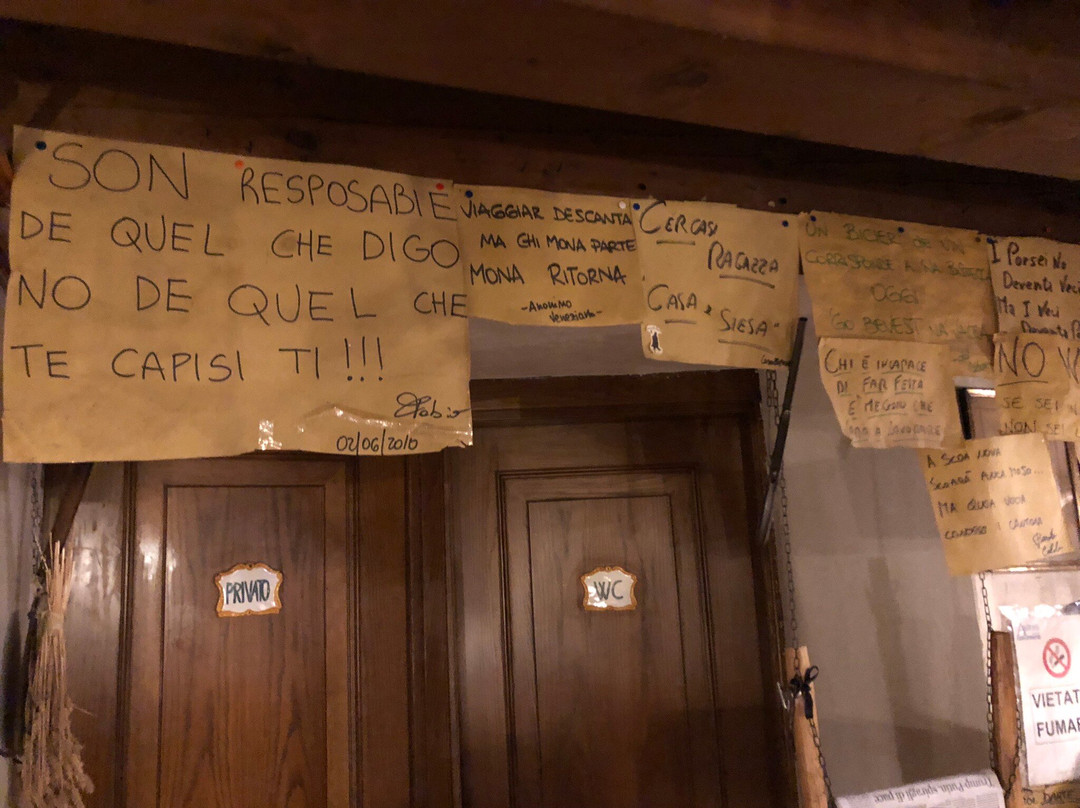 SON RESPOSABIE
DE QUEL CHE DIGO
NO DE QUEL CHE
TE CAPISI TI!!!
Fabio
02/06/2010
VIAGGIAR DESCANTA
MA CHI MONA PARTE
MONA RITORNA
-Anonimo
Veneziano-
CERCASI
RAGAZZA
CASA e
SIESA
UN BICER DE VIN
CORRISPONDE A NA
OGGI
GO BEVEST NA
I Porsei No
Deventa Veci
Ma I Veci
Deventa
CHI È INCAPACE
DI FAR FESTA
È MEGLIO CHE
NO
SE SEI
NON SEI
A SCOA NOVA
SCOARÀ
MA QUEA VECIA
CONOSSE I CANTONI
PRIVATO
WC
VIETAT
FUMAR
Trump-Putin, spiragli di pace